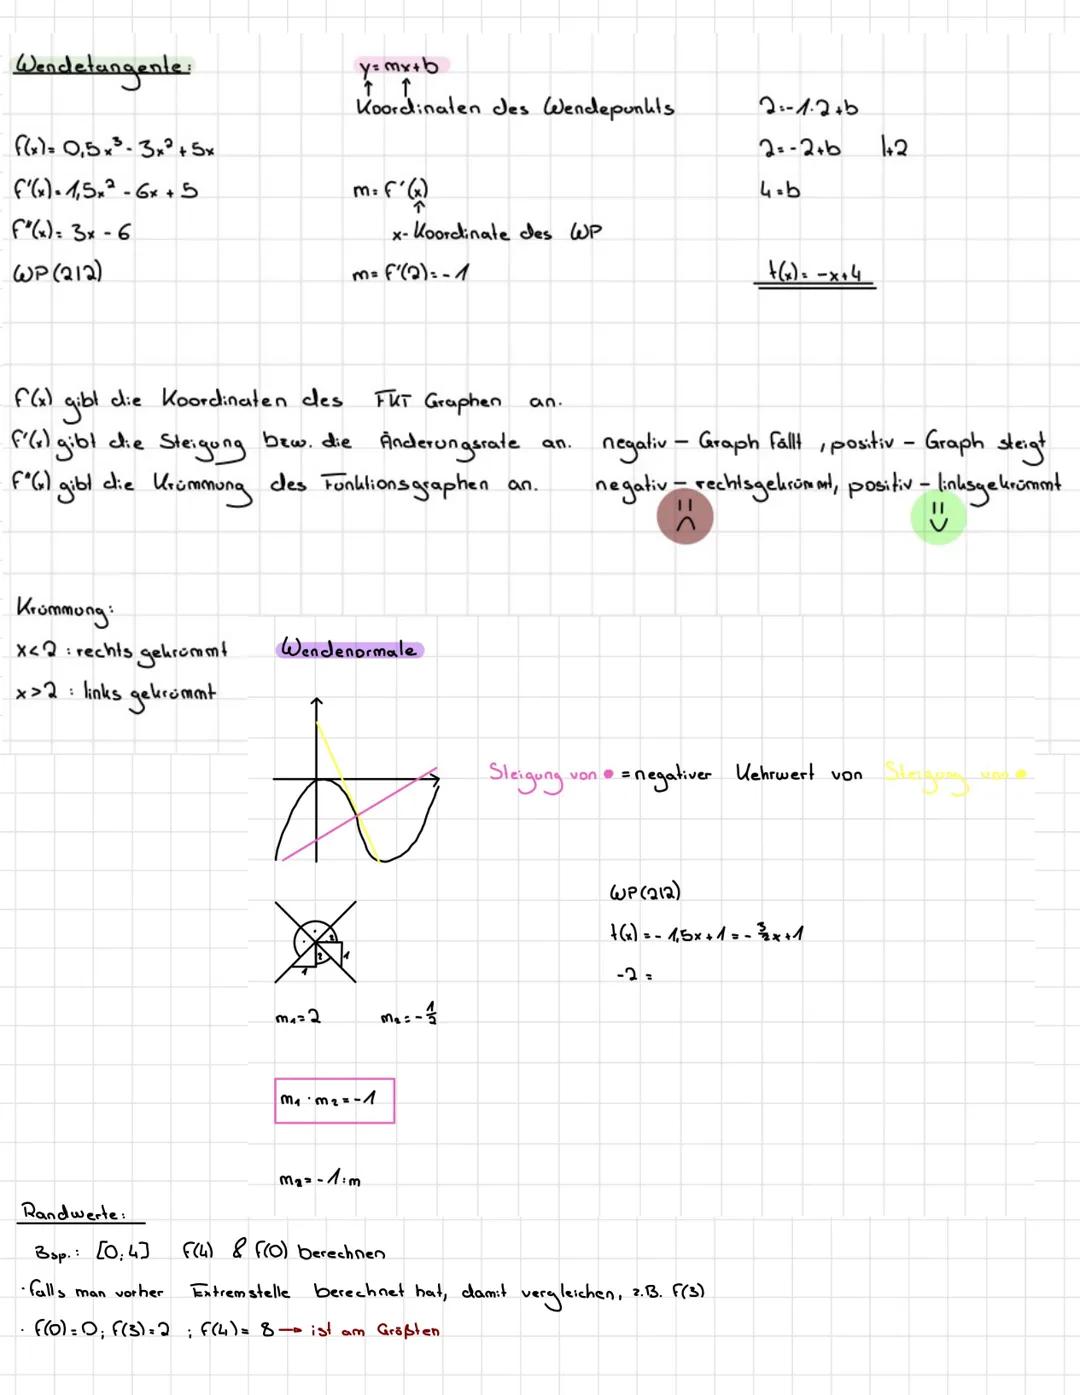 Wendetangente:
y=mx+b
↑ ↑
Koordinaten des Wendepunkts
f(x)= 0,5x³-3x²+5x
f'(x)=1,5x²-6x+5
f"(x)= 3x-6
WP(2|2)
m=f'(x)
↑
x-Koordinate des WP
m=f'(2)=-1
2=-1·2+b
2=-2+b |+2
4=b
t(x)=-x+4
f(x) gibt die Koordinaten des FKT Graphen an.
f'(x) gibt die Steigung bzw. die Änderungsrate an. negativ – Graph fällt, positiv – Graph steigt
f"(x) gibt die Krümmung des Funktionsgraphen an. negativ – rechtsgekrümmt, positiv – linksgekrümmt
Krümmung:
x<2 : rechts gekrümmt
x>2 : links gekrümmt
Wendenormale
Steigung von • = negativer Kehrwert von Steigung von •
WP(2|2)
t(x)=-1,5x+1=-3/2x+1
-2=
2
2 1
1
m₁=2 m₂=-1/2
m₁·m₂=-1
m₂=-1:m
Randwerte:
Bsp.: [0;4] f(4) & f(0) berechnen
·falls man vorher Extremstelle berechnet hat, damit vergleichen, z.B. f(3)
· f(0)=0; f(3)=2 ; f(4)= 8 → ist am Größten